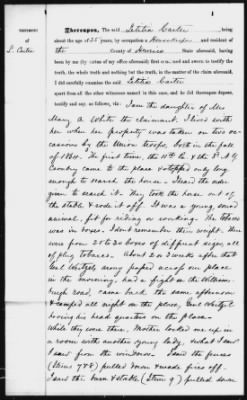 TESTIMONY
of
L. Carter
Thereupon, Letitia Carter being
about the age of 25 years, by occupation a and resident of
the County of Henrico State aforesaid, having
been by me (by virtue of my office aforesaid) first sworn and to testify the
truth, the whole truth and nothing but the truth, in the matter of the claim aforesaid,
I did carefully examine The said Letitia Carter
apart from all the other witnesses named in this case, and he did thereupon depose,
testify and say, as follows, viz: I am the daughter of Mrs
Mary A White the claimant. I lived with
her when her property was taken on two oc
casions by the Union troops, both in the fall
of 1864. The first time, the 11th Pa & the 3d N Y
Cavalry came to the place & stopped only long
enough to search the house. I heard the order
given to search it. They took the horse out of
the stable & rode it off. It was a young, sound
animal, fit for riding or working. The tobacco
was in boxes. I dont remember their weight. There
were from 20 to 30 boxes of different sizes, all
of plug tobacco. About 2 or 3 weeks after that
Genl Weitzels army passed across our place
in the morning, had a fight on the Williams
burgh road, came back the same afternoon
& camped all night on the place, Genl Weitzel
having his head quarters on the place.
While they were there, Mother locked me up in
a room with another young lady. What I saw
I saw from the windows. I saw the fences
(Items 7 & 8) pulled down & made fires of.
I saw the barn & stable (Item 9) pulled down